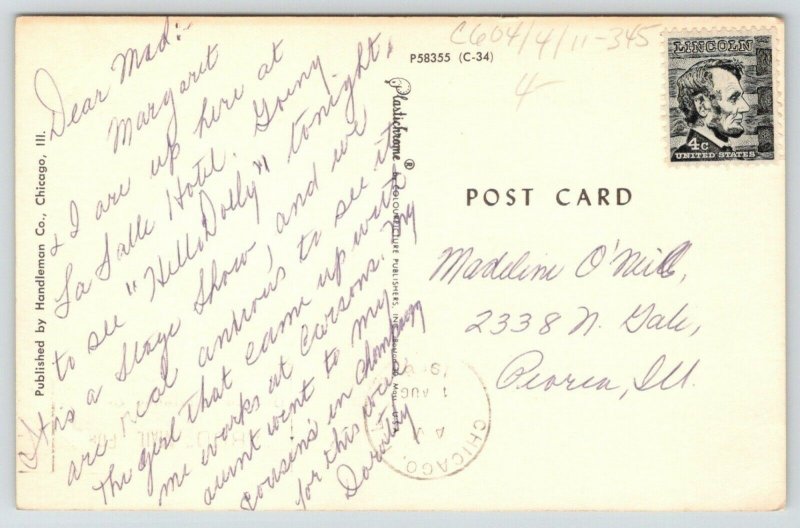 C604/4/11-345
4
P58355 (C-34)
LINCOLN
4c
UNITED STATES
Dear Mad:-
Margaret
& I are up here at
La Salle Hotel. Going
to see "Hello Dolly" tonight.
It is a Stage Show, and we
are real anxious to see it
The girl that came up with
me works at Carsons. My
aunt went to my
cousins in Champaign
for this week
Dorothy
Published by Handleman Co., Chicago, Ill.
Plastichrome ® by COLOURPICTURE PUBLISHERS, INC.
POST CARD
Madeline O'Neill,
2338 N. Gale,
Peoria, Ill.
CHICAGO,
1 AUG